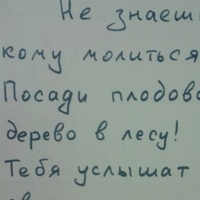 Не знаеш
кому молиться
Посади плодово
дерево в лесу!
Тебя услышат